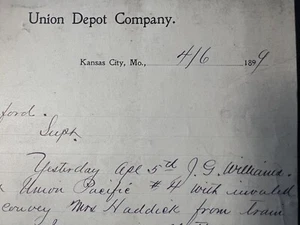 Union Depot Company.
Kansas City, Mo., 4/6 1899
ford.
Supt.
Yesterday Apl 5th J. G. Williams.
Union Pacific #4 with invalid
convey Mrs Haddick from train